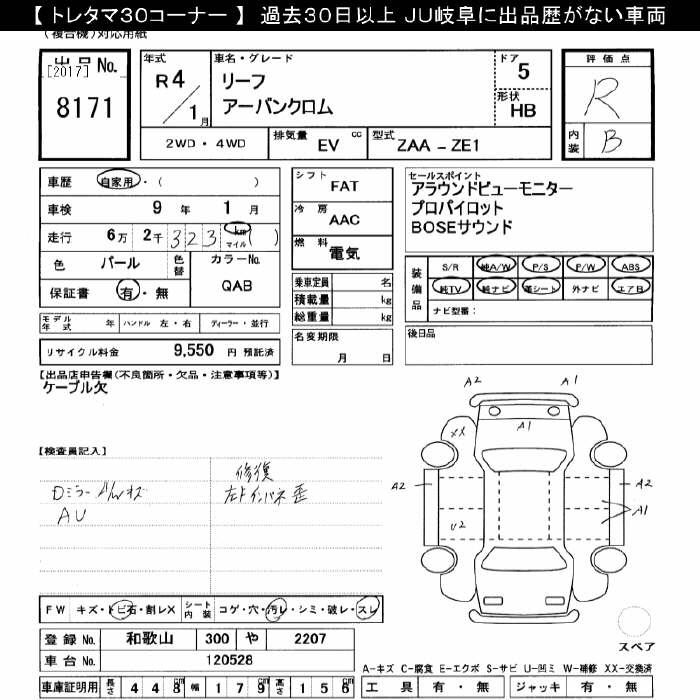 【 トレタマ30コーナー 】 過去30日以上 JU岐阜に出品歴がない車両
(複合機)対応用紙
出品 No.
[2017]
8171
年式
R4/1月
車名・グレード
リーフ
アーバンクロム
ドア 5
形状 HB
評価点
R
内装 B
2WD ・ 4WD
排気量 EV cc
型式 ZAA - ZE1
車歴 自家用・( )
車検 9 年 1 月
走行 6万 2千 323 km マイル ( )
色 パール 色替 カラーNo. QAB
保証書 有・無
シフト FAT
冷房 AAC
燃料 電気
乗車定員 名
積載量 kg
総重量 kg
セールスポイント
アラウンドビューモニター
プロパイロット
BOSEサウンド
装備品
S/R 純A/W P/S P/W ABS
純TV 純ナビ 革シート 外ナビ エアB
ナビ型番:
モデル年式 年 ハンドル 左・右 ディーラー・並行
名変期限
月 日
後日品
リサイクル料金 9,550 円 預託済
【出品店申告欄(不良箇所・欠品・注意事項等)】
ケーブル欠
【検査員記入】
Dミラー A/Wキズ
AU
修復
左Fインパネ歪
A2 A1
A1
XX
A2 A2
A1
U2
スペア
FW キズ・トビ石・割レX シート内装 コゲ・穴・汚レ・シミ・破レ・スレ
登録 No. 和歌山 300 や 2207
車台 No. 120528
車庫証明用 長さ 448cm 幅 179cm 高さ 156cm
A-キズ C-腐食 E-エクボ S-サビ U-凹ミ W-補修 XX-交換済
工具 有・無 ジャッキ 有・無